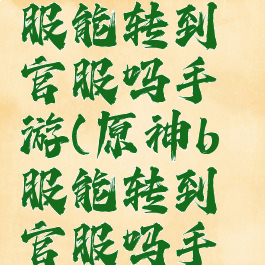 服能转到
官服吗手
游(原神b
服能转到
官服吗手